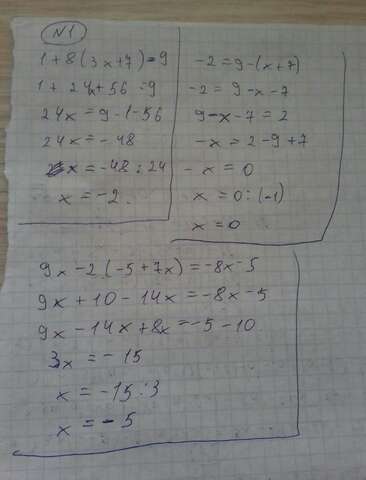 N1
1+8(3x+7)=9
1+24x+56=9
24x=9-1-56
24x=-48
x=-48:24
x=-2.
-2=9-(x+7)
-2=9-x-7
9-x-7=2
-x=2-9+7
-x=0
x=0:(-1)
x=0
9x-2(-5+7x)=-8x-5
9x+10-14x=-8x-5
9x-14x+8x=-5-10
3x=-15
x=-15:3
x=-5